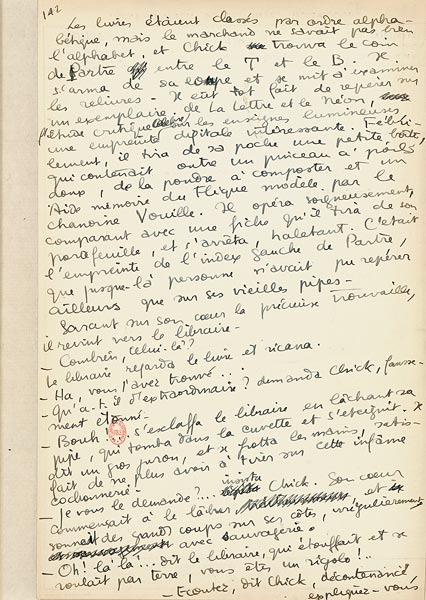 142
Les livres étaient classés par ordre alpha-
bétique, mais le marchand ne savait pas bien
l'alphabet, et Chick trouva le coin
de Partre entre le T et le B. Il
s'arma de sa loupe et se mit à examiner
les reliures. Il eut tôt fait de repérer sur
un exemplaire, de la Lettre et le Néon,
étude critique célèbre sur les enseignes lumineuses
une empreinte digitale intéressante. Fébri-
lement, il tira de sa poche une petite boîte,
qui contenait outre un pinceau à poils
doux, de la poudre à composter et un
Aide mémoire du Flique modèle, par le
chanoine Vouille. Il opéra soigneusement,
comparant avec une fiche qu'il tira de son
portefeuille, et s'arrêta, haletant. C'était
l'empreinte de l'index gauche de Partre,
que jusque-là personne n'avait pu repérer
ailleurs que sur ses vieilles pipes -
Serrant sur son cœur la précieuse trouvaille,
il revint vers le libraire -
- Combien, celui-là ?
Le libraire regarda le livre et ricana.
- Ha, vous l'avez trouvé ...
- Qu'a-t-il d'extraordinaire ? demanda Chick, fausse-
ment étonné -
- Bouh ! s'esclaffa le libraire en lâchant sa
pipe, qui tomba dans la cuvette et s'éteignit. Il
dit un gros juron, et se frotta les mains, satis-
fait de ne plus avoir à tirer sur cette infâme
cochonnerie -
- Je vous le demande ?... insista Chick. Son cœur
commençait à le lâcher, et
sonnait des grands coups sur ses côtes, irrégulièrement
avec sauvagerie.
- Oh ! là là !... dit le libraire, qui étouffait et se
roulait par terre, vous êtes un rigolo !..
- Ecoutez, dit Chick, décontenancé,
expliquez-vous